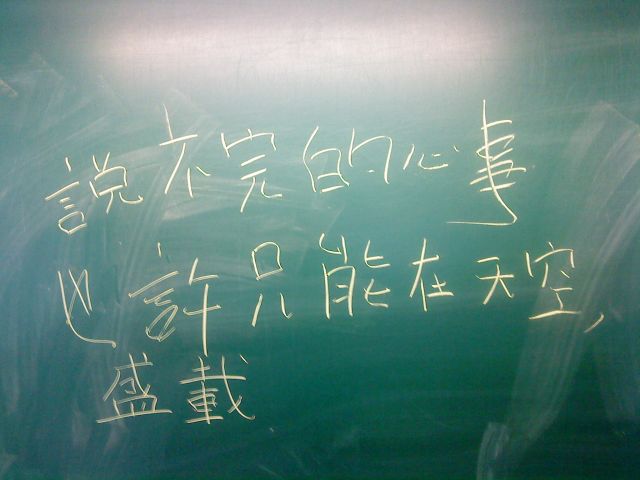 說不完的心事
也許只能在天空,
盛載